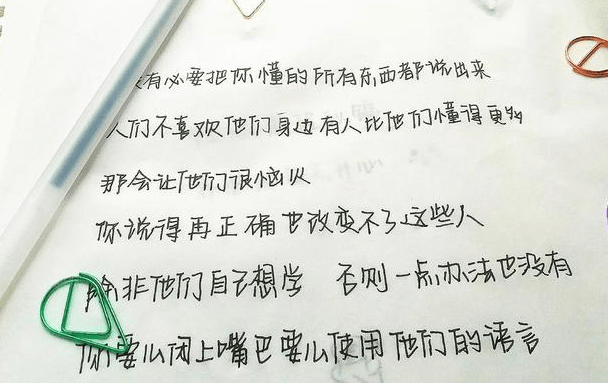 没有必要把你懂的所有东西都说出来
人们不喜欢他们身边有人比他们懂得更多
那会让他们很恼火
你说得再正确也改变不了这些人
除非他们自己想学 否则一点办法也没有
你要么闭上嘴巴要么使用他们的语言